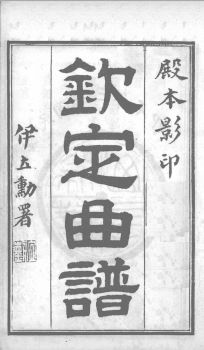 殿本影印
欽定曲譜
伊立勳署